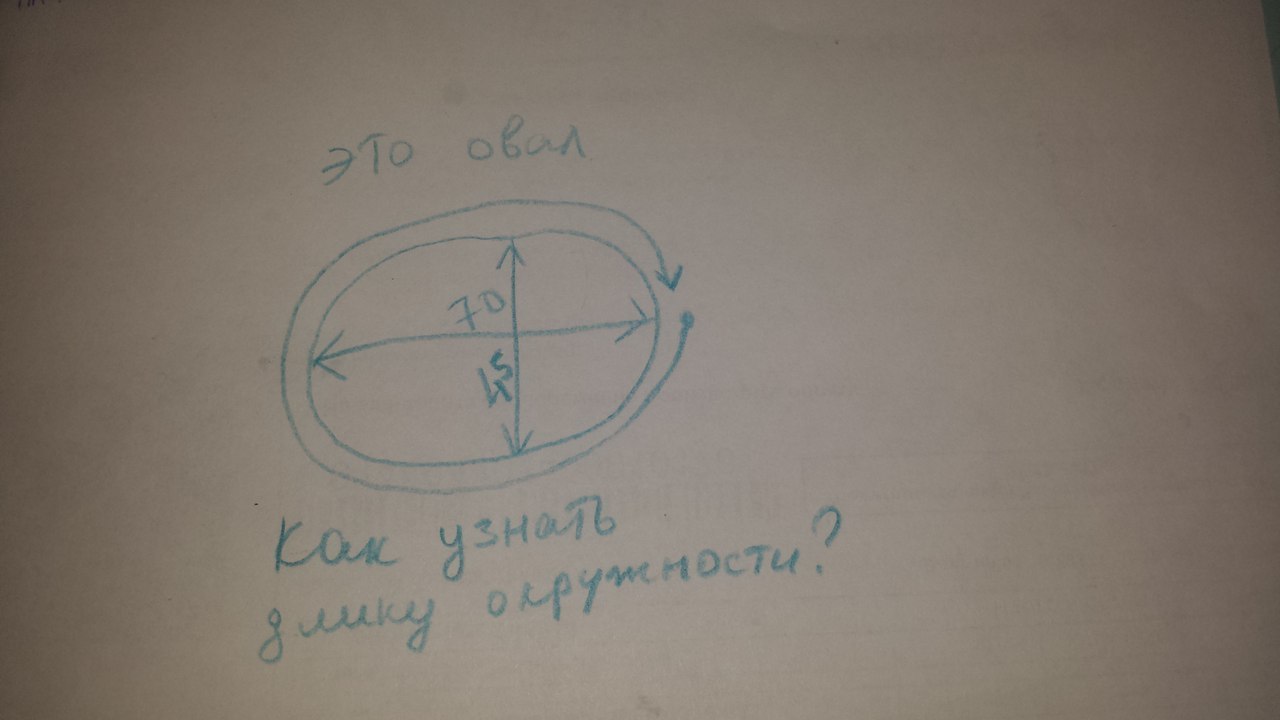 это овал
70
45
Как узнать
длину окружности?